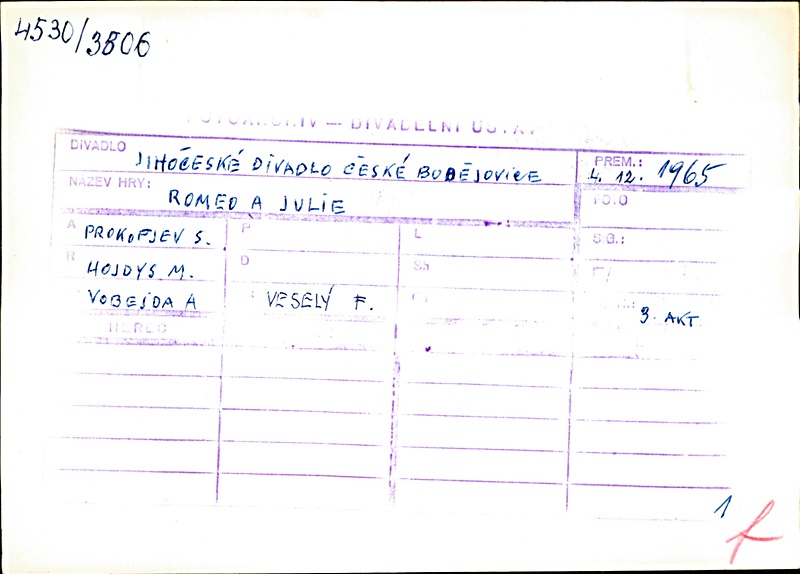 4530/3806
FOTOARCHIV — DIVADELNÍ ÚSTAV
DIVADLO JIHOČESKÉ DIVADLO ČESKÉ BUDĚJOVICE PREM.: 4. 12. 1965
NÁZEV HRY: ROMEO A JULIE
A PROKOFJEV S. P L S.G.:
R HOJDYS M. D Sh
VOBEJDA A VESELÝ F. 3. AKT
HEREC
1